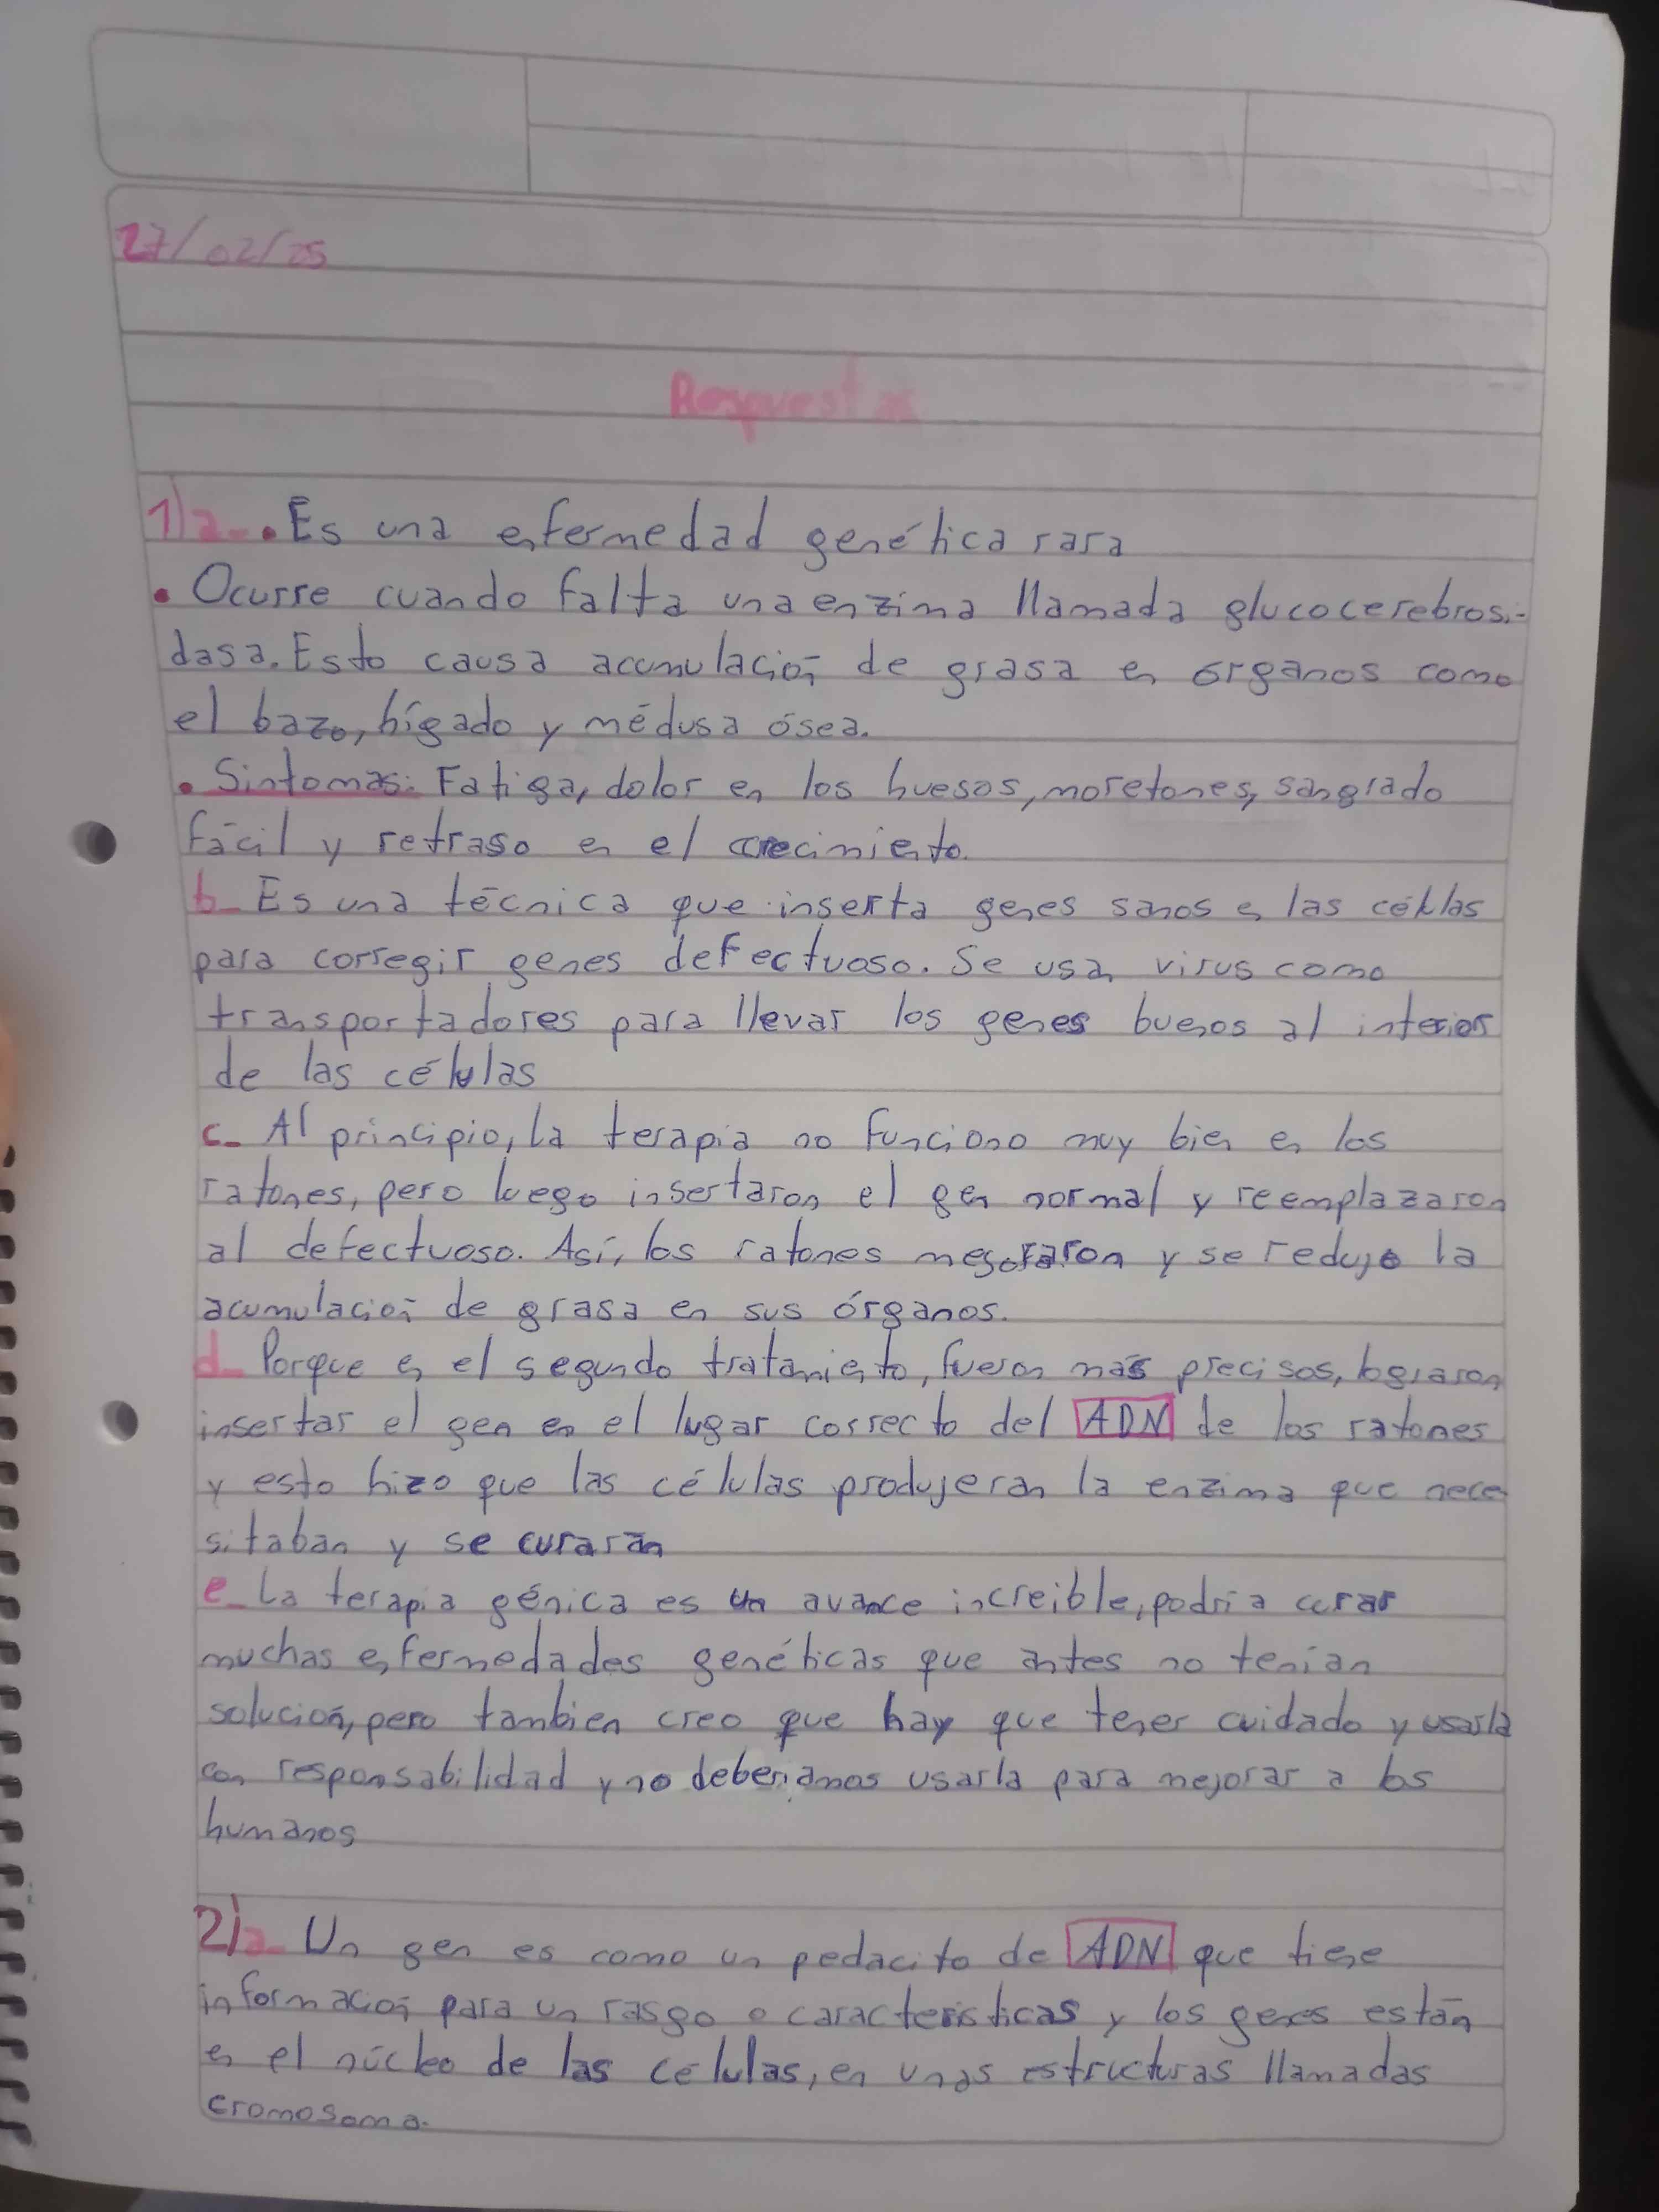 27/02/25
Respuestas
1)a-. Es una enfermedad genética rara
• Ocurre cuando falta una enzima llamada glucocerebrosi-
dasa. Esto causa acumulación de grasa en órganos como
el bazo, hígado y médusa ósea.
• Sintomas: Fatiga, dolor en los huesos, moretones, sangrado
fácil y retraso en el crecimiento.
b- Es una técnica que inserta genes sanos en las células
para corregir genes defectuoso. Se usan virus como
transportadores para llevar los genes buenos al interior
de las células
c- Al principio, la terapia no funciono muy bien en los
ratones, pero luego insertaron el gen normal y reemplazaron
al defectuoso. Así, los ratones mejoraron y se redujo la
acumulación de grasa en sus órganos.
d- Porque en el segundo tratamiento, fueron más precisos, lograron
insertar el gen en el lugar correcto del ADN de los ratones
y esto hizo que las células produjeran la enzima que nece
sitaban y se curarán
e- La terapia génica es un avance increible, podría curar
muchas enfermedades genéticas que antes no tenían
solución, pero tambien creo que hay que tener cuidado y usarla
con responsabilidad y no deberiamos usarla para mejorar a los
humanos
2)a- Un gen es como un pedacito de ADN que tiene
información para un rasgo o caracteristicas y los genes están
en el núcleo de las células, en unas estructuras llamadas
cromosoma.